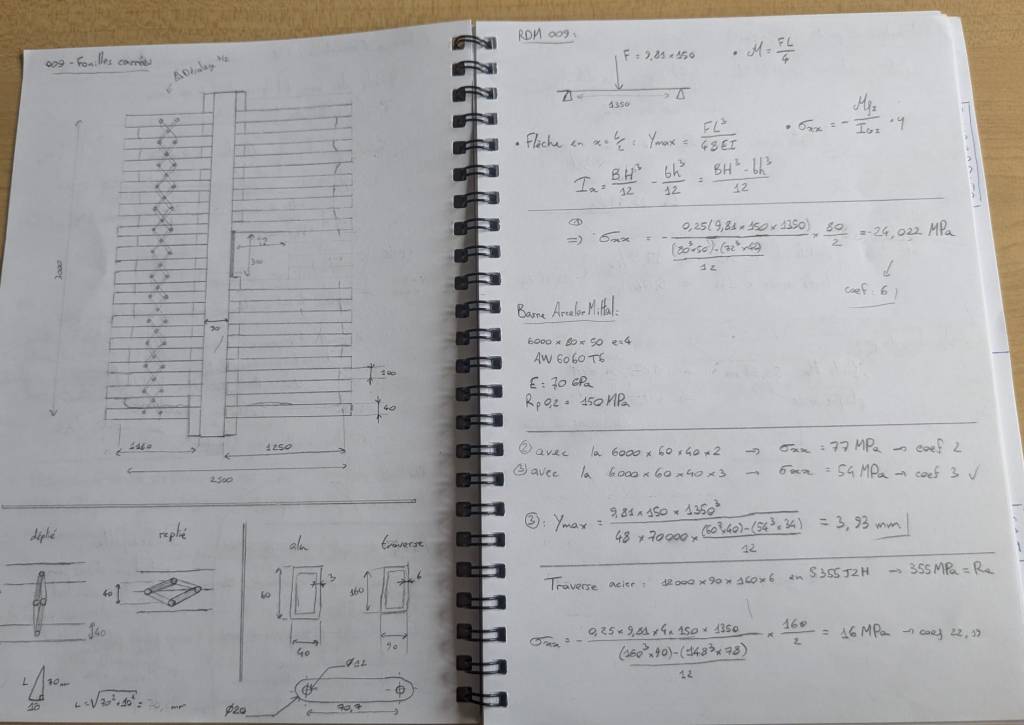 009 - Fouilles carrées
Détrolage N2
12
300
2000
90
100
40
1160
1250
2500
déplié
replié
alu
traverse
40
40
60
3
40
160
6
90
L
70 mm
10
L = √70² + 10² = 70, mm
Ø12
Ø20
70,7
RDM 009 :
F = 9,81 × 150
• M = FL/4
1350
• σxx = - Mfz/IGz · y
• Flèche en x = L/2 : Ymax = FL³/48EI
Ix = BH³/12 - bh³/12 = BH³ - bh³/12
①
=> σxx = - 0,25(9,81 × 150 × 1350)/((80³×50)-(72³×42)/12) × 80/2 = -24,022 MPa
coef : 6
Barre ArcelorMittal :
6000 × 80 × 50 e=4
AW 6060 T6
E : 70 GPa
Rp0,2 = 150 MPa
② avec la 6000 × 60 × 40 × 2 → σxx = 77 MPa → coef 2
③ avec la 6000 × 60 × 40 × 3 → σxx = 54 MPa → coef 3 ✓
③ : Ymax = 9,81 × 150 × 1350³/(48 × 70000 × (60³×40)-(54³×34)/12) = 3,93 mm
Traverse acier : 12000 × 90 × 160 × 6 en S355J2H → 355 MPa = Re
σxx = - 0,25 × 9,81 × 4 × 150 × 1350/((160³×90)-(148³×78)/12) × 160/2 = 16 MPa → coef 22,19